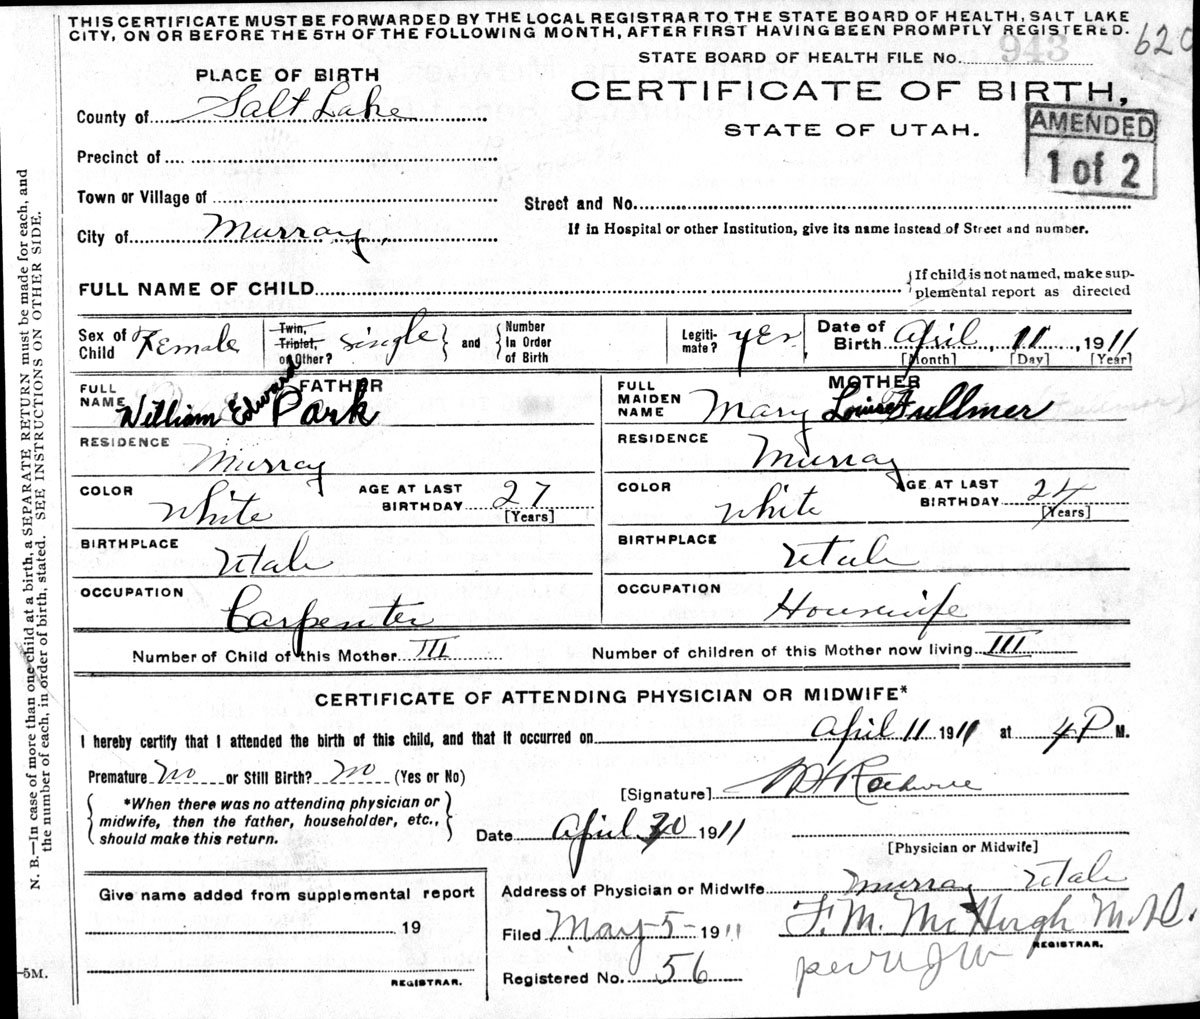 THIS CERTIFICATE MUST BE FORWARDED BY THE LOCAL REGISTRAR TO THE STATE BOARD OF HEALTH, SALT LAKE
CITY, ON OR BEFORE THE 5TH OF THE FOLLOWING MONTH, AFTER FIRST HAVING BEEN PROMPTLY REGISTERED.
620
STATE BOARD OF HEALTH FILE No. 943
PLACE OF BIRTH
CERTIFICATE OF BIRTH,
STATE OF UTAH.
AMENDED
1 of 2
County of Salt Lake
Precinct of
Town or Village of
Street and No.
City of Murray
If in Hospital or other Institution, give its name instead of Street and number.
FULL NAME OF CHILD
{If child is not named, make sup-
plemental report as directed
Sex of Child Female
Twin, Triplet, or Other? single } and { Number In Order of Birth
Legiti-mate? yes
Date of Birth April 11, 1911
[Month] [Day] [Year]
FATHER
FULL NAME William Edward Park
RESIDENCE Murray
COLOR White AGE AT LAST BIRTHDAY 27 [Years]
BIRTHPLACE Utah
OCCUPATION Carpenter
MOTHER
FULL MAIDEN NAME Mary Louise Fullmer
RESIDENCE Murray
COLOR White AGE AT LAST BIRTHDAY 24 [Years]
BIRTHPLACE Utah
OCCUPATION Housewife
Number of Child of this Mother III Number of children of this Mother now living III
CERTIFICATE OF ATTENDING PHYSICIAN OR MIDWIFE*
I hereby certify that I attended the birth of this child, and that it occurred on April 11 1911 at 4 P M.
Premature no or Still Birth? no (Yes or No)
{ *When there was no attending physician or
midwife, then the father, householder, etc.,
should make this return. }
[Signature]
Date April 20 1911
[Physician or Midwife]
Address of Physician or Midwife Murray Utah
Give name added from supplemental report
19
REGISTRAR.
Filed May 5- 1911 F. M. McHugh M.D.
REGISTRAR.
Registered No. 56 per
N. B.—In case of more than one child at a birth, a SEPARATE RETURN must be made for each, and
the number of each, in order of birth, stated. SEE INSTRUCTIONS ON OTHER SIDE.
-5M.